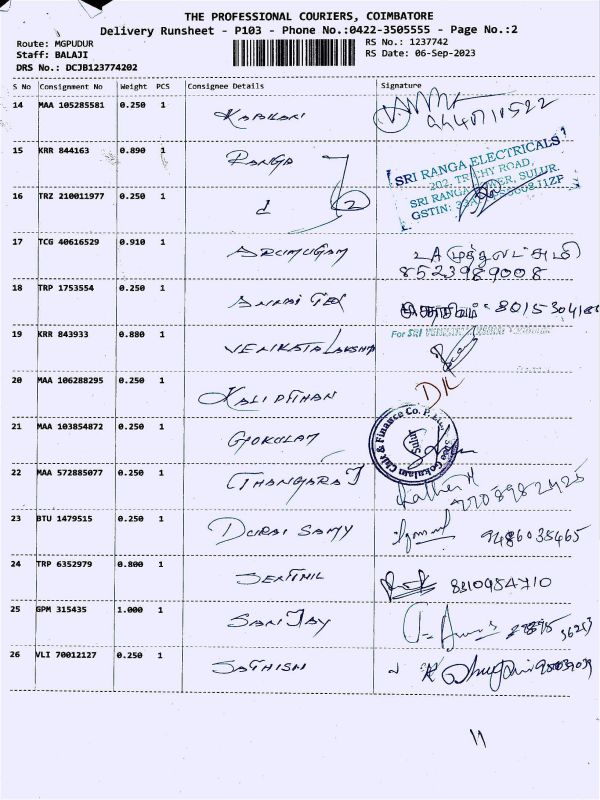 THE PROFESSIONAL COURIERS, COIMBATORE
Delivery Runsheet - P103 - Phone No.:0422-3505555 - Page No.:2
Route: MGPUDUR
RS No.: 1237742
Staff: BALAJI
RS Date: 06-Sep-2023
DRS No.: DCJB123774202
S No Consignment No Weight PCS Consignee Details Signature
14 MAA 105285581 0.250 1 KABILAN
15 KRR 844163 0.890 1 RANGA
SRI RANGA ELECTRICALS
202, TRICHY ROAD,
SRI RANGA TOWER, SULUR.
GSTIN:
16 TRZ 210011977 0.250 1 2
17 TCG 40616529 0.910 1 ARUMUGAM
8523989008
18 TRP 1753554 0.250 1
19 KRR 843933 0.880 1 VENKATALAKSHMI
For Sri
20 MAA 106288295 0.250 1
21 MAA 103854872 0.250 1 GOKULAM
Sree Gokulam Chit & Finance Co. P. Ltd.
Sulur
22 MAA 572885077 0.250 1 THANGARAJ
23 BTU 1479515 0.250 1 DURAI SAMY 9486035465
24 TRP 6352979 0.800 1 SENTHIL 8310954710
25 GPM 315435 1.000 1 SANJAY
26 VLI 70012127 0.250 1 SATHISH